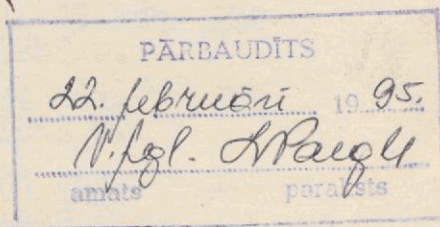 PĀRBAUDĪTS
22. februāri 1995.
amats paraksts